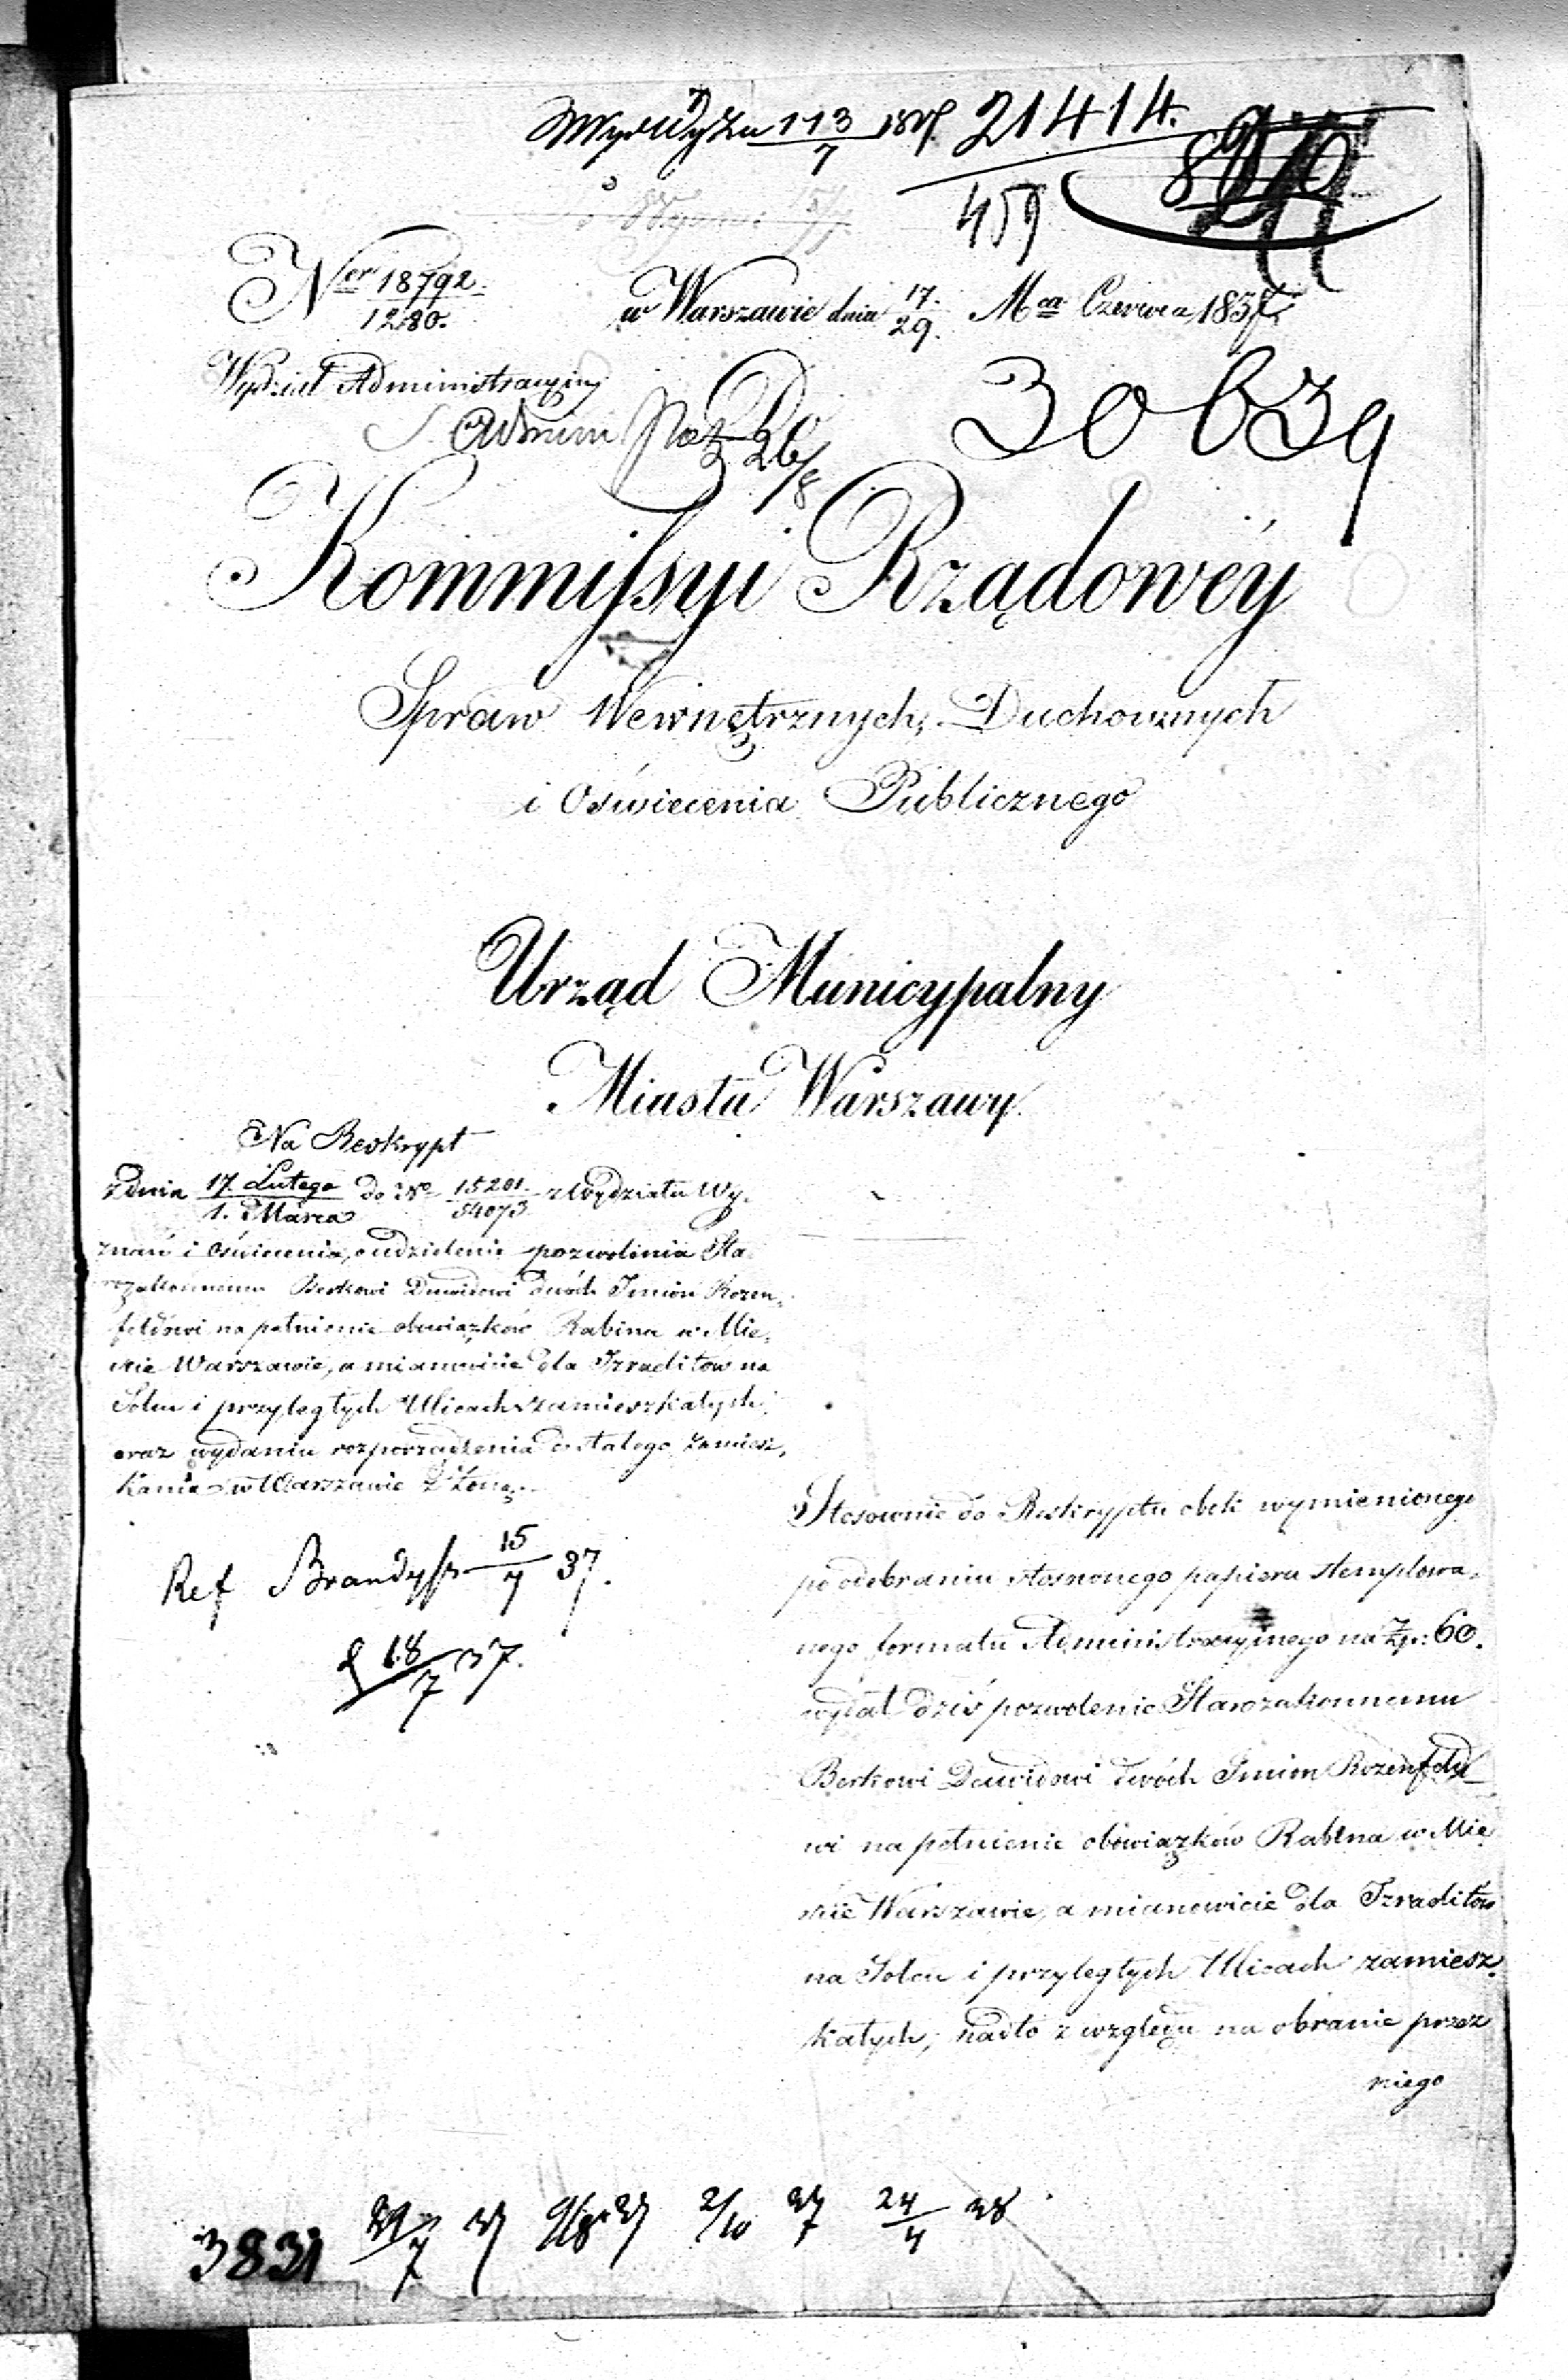 113/7 1837. 21414.
459
Ner 18792./12180. w Warszawie dnia 17./29. Mca Czerwca 1837.
Wydział Administracyjny
Do 30639
26/8
Kommissyi Rządowéy
Spraw Wewnętrznych, Duchownych
i Oświecenia Publicznego
Urząd Municypalny
Miasta Warszawy.
Na Reskrypt
z dnia 17. Lutego/1. Marca do No 15201./54073 z Wydziału Wy-
znań i Oświecenia, o udzielenie pozwolenia Sta-
rozakonnemu Berkowi Dawidowi dwóch Imion Rozen-
feldowi na pełnienie obowiązków Rabina w Mie-
ście Warszawie, a mianowicie dla Izraelitów na
Solcu i przyległych Ulicach zamieszkałych,
oraz wydaniu rozporządzenia do stałego zamiesz-
kania w Warszawie z Żoną.
Stosownie do Reskryptu obok wymienionego
po odebraniu stosownego papieru stemplowa-
nego formatu Administracyjnego na Złp: 60.
wydał dziś pozwolenie Starozakonnemu
Berkowi Dawidowi dwóch Imion Rozenfeldo-
wi na pełnienie obowiązków Rabina w Mie
ście Warszawie, a mianowicie dla Izraelitów
na Solcu i przyległych Ulicach zamiesz-
kałych, nadto z względu na obranie przez
niego
Ref Brandys 15/7 37.
18/7 37.
3831 7 37 9/8 37 2/10 37 24/4 38